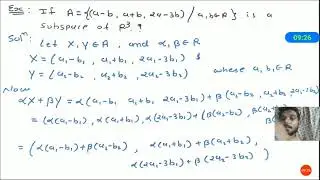 Exc: If A = {(a-b, a+b, 2a-3b) / a,b∈R} is a
subspace of R³ ?
Solⁿ: Let X, Y ∈ A , and α, β ∈ R
X = (a₁-b₁, a₁+b₁, 2a₁-3b₁)
Y = (a₂-b₂, a₂+b₂, 2a₂-3b₂) where a₁, b₁ ∈ R
Now
αX + βY = α(a₁-b₁, a₁+b₁, 2a₁-3b₁) + β(a₂-b₂, a₂+b₂, 2a₂-
= (α(a₁-b₁), α(a₁+b₁), α(2a₁-3b₁)) + (β(a₂-b₂), β(a₂+
= (α(a₁-b₁) + β(a₂-b₂) , α(a₁+b₁) + β(a₂+b₂),
α(2a₁-3b₁) + β(2a₂-3b₂) )
09:26